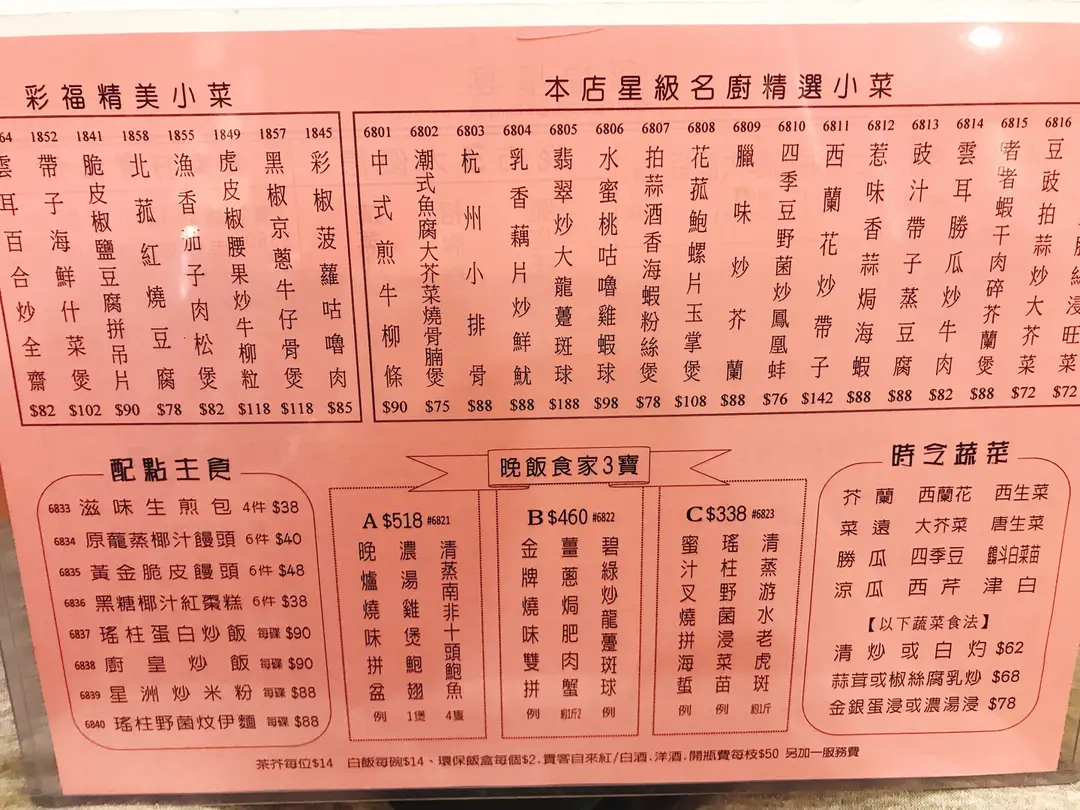 彩福精美小菜
64 雲耳百合炒全齋 $82
1852 帶子海鮮什菜煲 $102
1841 脆皮椒鹽豆腐拼吊片 $90
1858 北菰紅燒豆腐 $78
1855 漁香茄子肉松煲 $82
1849 虎皮椒腰果炒牛柳粒 $118
1857 黑椒京蔥牛仔骨煲 $118
1845 彩椒菠蘿咕嚕肉 $85
本店星級名廚精選小菜
6801 中式煎牛柳條 $90
6802 潮式魚腐大芥菜燒骨腩煲 $75
6803 杭州小排骨 $88
6804 乳香藕片炒鮮魷 $88
6805 翡翠炒大龍躉斑球 $188
6806 水蜜桃咕嚕雞蝦球 $98
6807 拍蒜酒香海蝦粉絲煲 $78
6808 花菰鮑螺片玉掌煲 $108
6809 臘味炒芥蘭 $88
6810 四季豆野菌炒鳳凰蚌 $76
6811 西蘭花炒帶子 $142
6812 惹味香蒜焗海蝦 $88
6813 豉汁帶子蒸豆腐 $88
6814 雲耳勝瓜炒牛肉 $82
6815 啫啫蝦干肉碎芥蘭煲 $88
6816 豆豉拍蒜炒大芥菜 $72
絲浸旺菜 $72
配點主食
6833 滋味生煎包 4件 $38
6834 原龍蒸椰汁饅頭 6件 $40
6835 黃金脆皮饅頭 6件 $48
6836 黑糖椰汁紅棗糕 6件 $38
6837 瑤柱蛋白炒飯 每碟 $90
6838 廚皇炒飯 每碟 $90
6839 星洲炒米粉 每碟 $88
6840 瑤柱野菌炆伊麵 每碟 $88
晚飯食家3寶
A $518 #6821
晚爐燒味拼盆 例
濃湯雞煲鮑翅 1煲
清蒸南非十頭鮑魚 4隻
B $460 #6822
金牌燒味雙拼 例
薑蔥焗肥肉蟹 約1斤2
碧綠炒龍躉斑球 例
C $338 #6823
蜜汁叉燒拼海蜇 例
瑤柱野菌浸菜苗 例
清蒸游水老虎斑 約1斤
時令蔬菜
芥蘭 西蘭花 西生菜
菜遠 大芥菜 唐生菜
勝瓜 四季豆 鶴斗白菜苗
涼瓜 西芹 津白
【以下蔬菜食法】
清炒或白灼 $62
蒜茸或椒絲腐乳炒 $68
金銀蛋浸或濃湯浸 $78
茶芥每位$14 白飯每碗$14、環保飯盒每個$2.貴客自來紅/白酒.洋酒.開瓶費每枝$50 另加一服務費